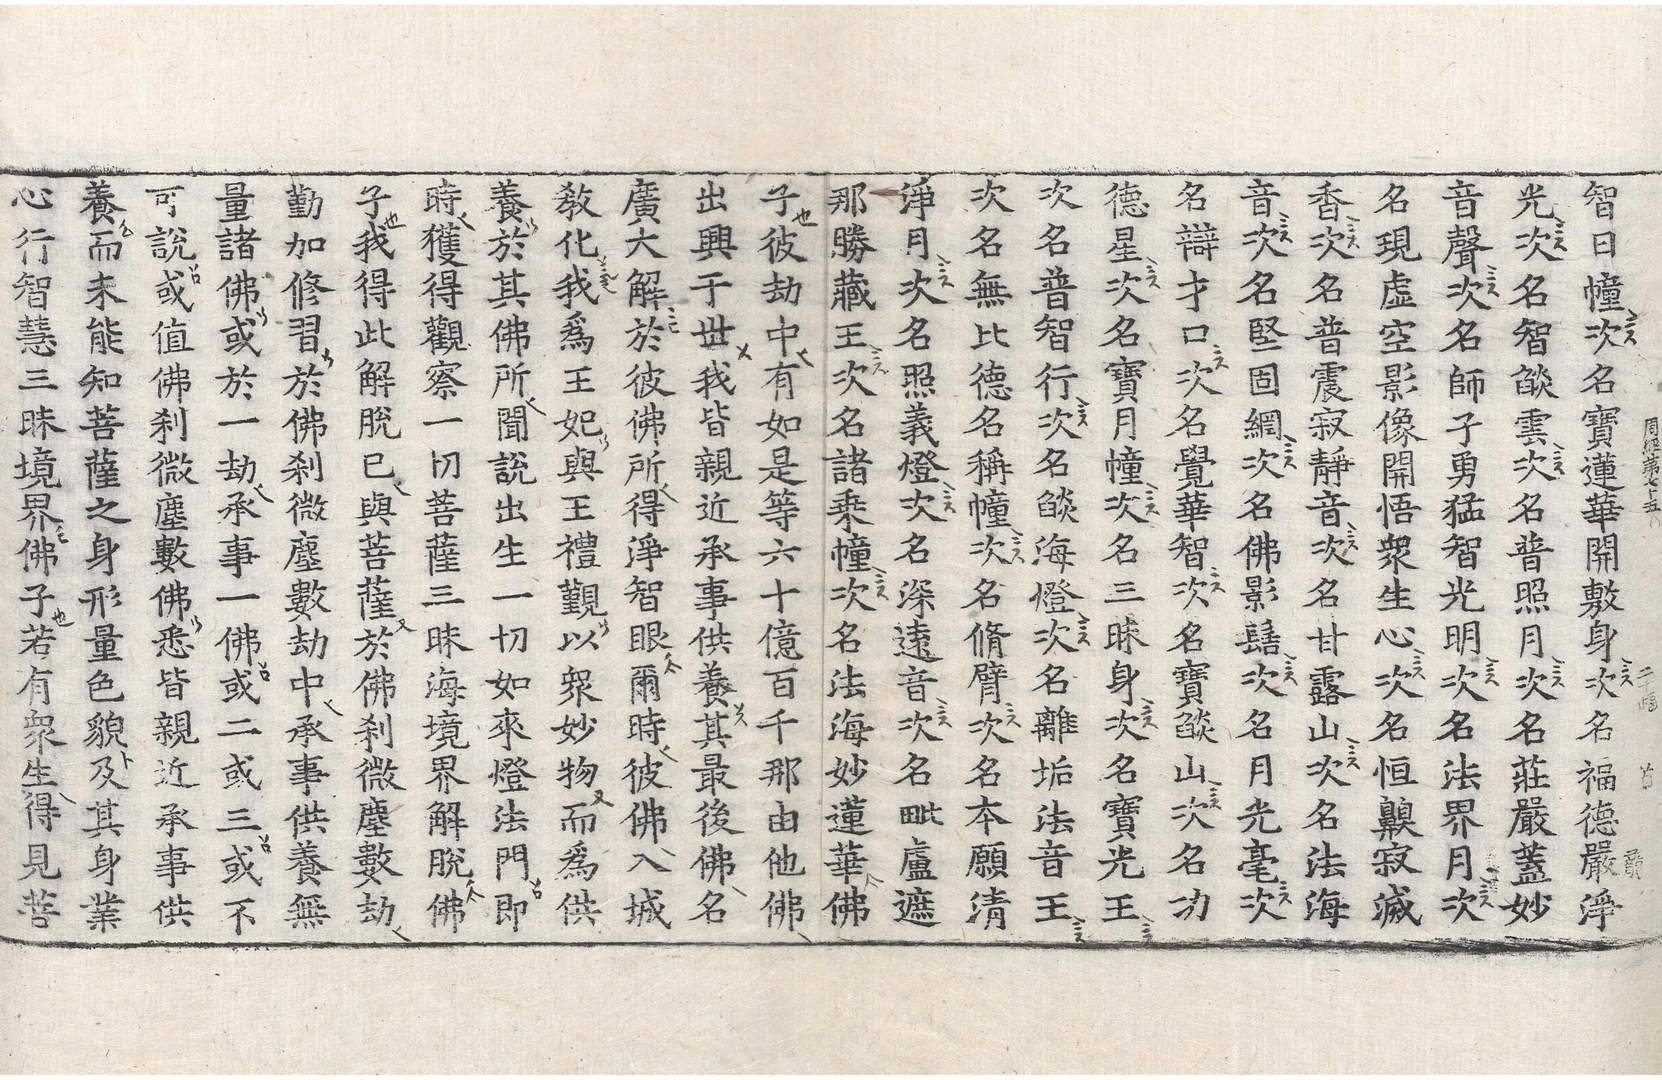 智日幢次名寶蓮華開敷身次名福德嚴淨
光次名智燄雲次名普照月次名莊嚴蓋妙
音聲次名師子勇猛智光明次名法界月次
名現虛空影像開悟衆生心次名恒齅寂滅
香次名普震寂靜音次名甘露山次名法海
音次名堅固網次名佛影髻次名月光毫次
名辯才口次名覺華智次名寶燄山次名功
德星次名寶月幢次名三昧身次名寶光王
次名普智行次名燄海燈次名離垢法音王
次名無比德名稱幢次名脩臂次名本願清
淨月次名照義燈次名深遠音次名毗盧遮
那勝藏王次名諸乗幢次名法海妙蓮華佛
子彼劫中有如是等六十億百千那由他佛
出興于世我皆親近承事供養其最後佛名
廣大解於彼佛所得淨智眼爾時彼佛入城
敎化我爲王妃與王禮觀以衆妙物而爲供
養於其佛所聞說出生一切如來燈法門即
時獲得觀察一切菩薩三昧海境界解脫佛
子我得此解脫已與菩薩於佛刹微塵數劫
勤加修習於佛刹微塵數劫中承事供養無
量諸佛或於一劫承事一佛或二或三或不
可說或値佛刹微塵數佛悉皆親近承事供
養而未能知菩薩之身形量色貌及其身業
心行智慧三昧境界佛子若有衆生得見菩